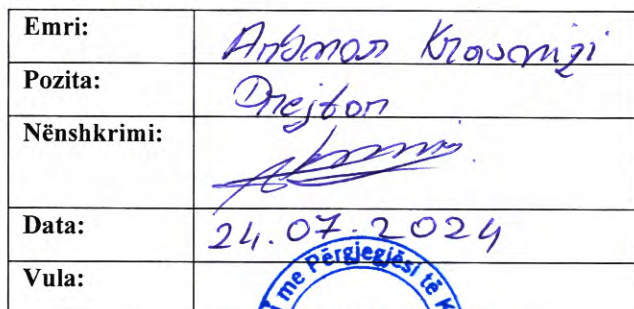 Emri: Arbnor Krasniqi
Pozita: Drejtor
Nënshkrimi:
Data: 24.07.2024
Vula:
me Përgjegjësi të K